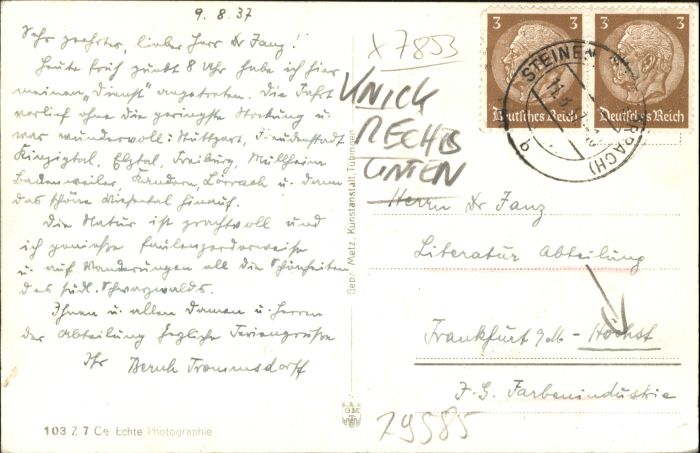 9. 8. 37
Sehr geehrter, lieber Herr Dr Janz!
Heute früh punkt 8 Uhr habe ich hier
meinen "Dienst" angetreten. Die Fahrt
verlief ohne die geringste Stockung u.
war wundervoll: Stuttgart, Freudenstadt
Kinzigtal, Elztal, Freiburg, Müllheim
Badenweiler, Kandern, Lörrach u. dann
das schöne Wiesental hinauf.
Die Natur ist prachtvoll und
ich genieße faulenzenderweise
u. auf Wanderungen all die Schönheiten
des südl. Schwarzwalds.
Ihnen u. allen Damen u. Herren
der Abteilung herzliche Feriengrüße
Ihr Trommsdorff
103 Z 7 Ce Echte Photographie
Gebr. Metz, Kunstanstalt, Tübingen
GM
x 7853
KNICK
RECHTS
UNTEN
3 3
Deutsches Reich Deutsches Reich
STEINEN LÖRRACH)
Herrn Dr Janz
Literatur Abteilung
Frankfurt a/M - Höchst
I. G. Farbenindustrie
79585